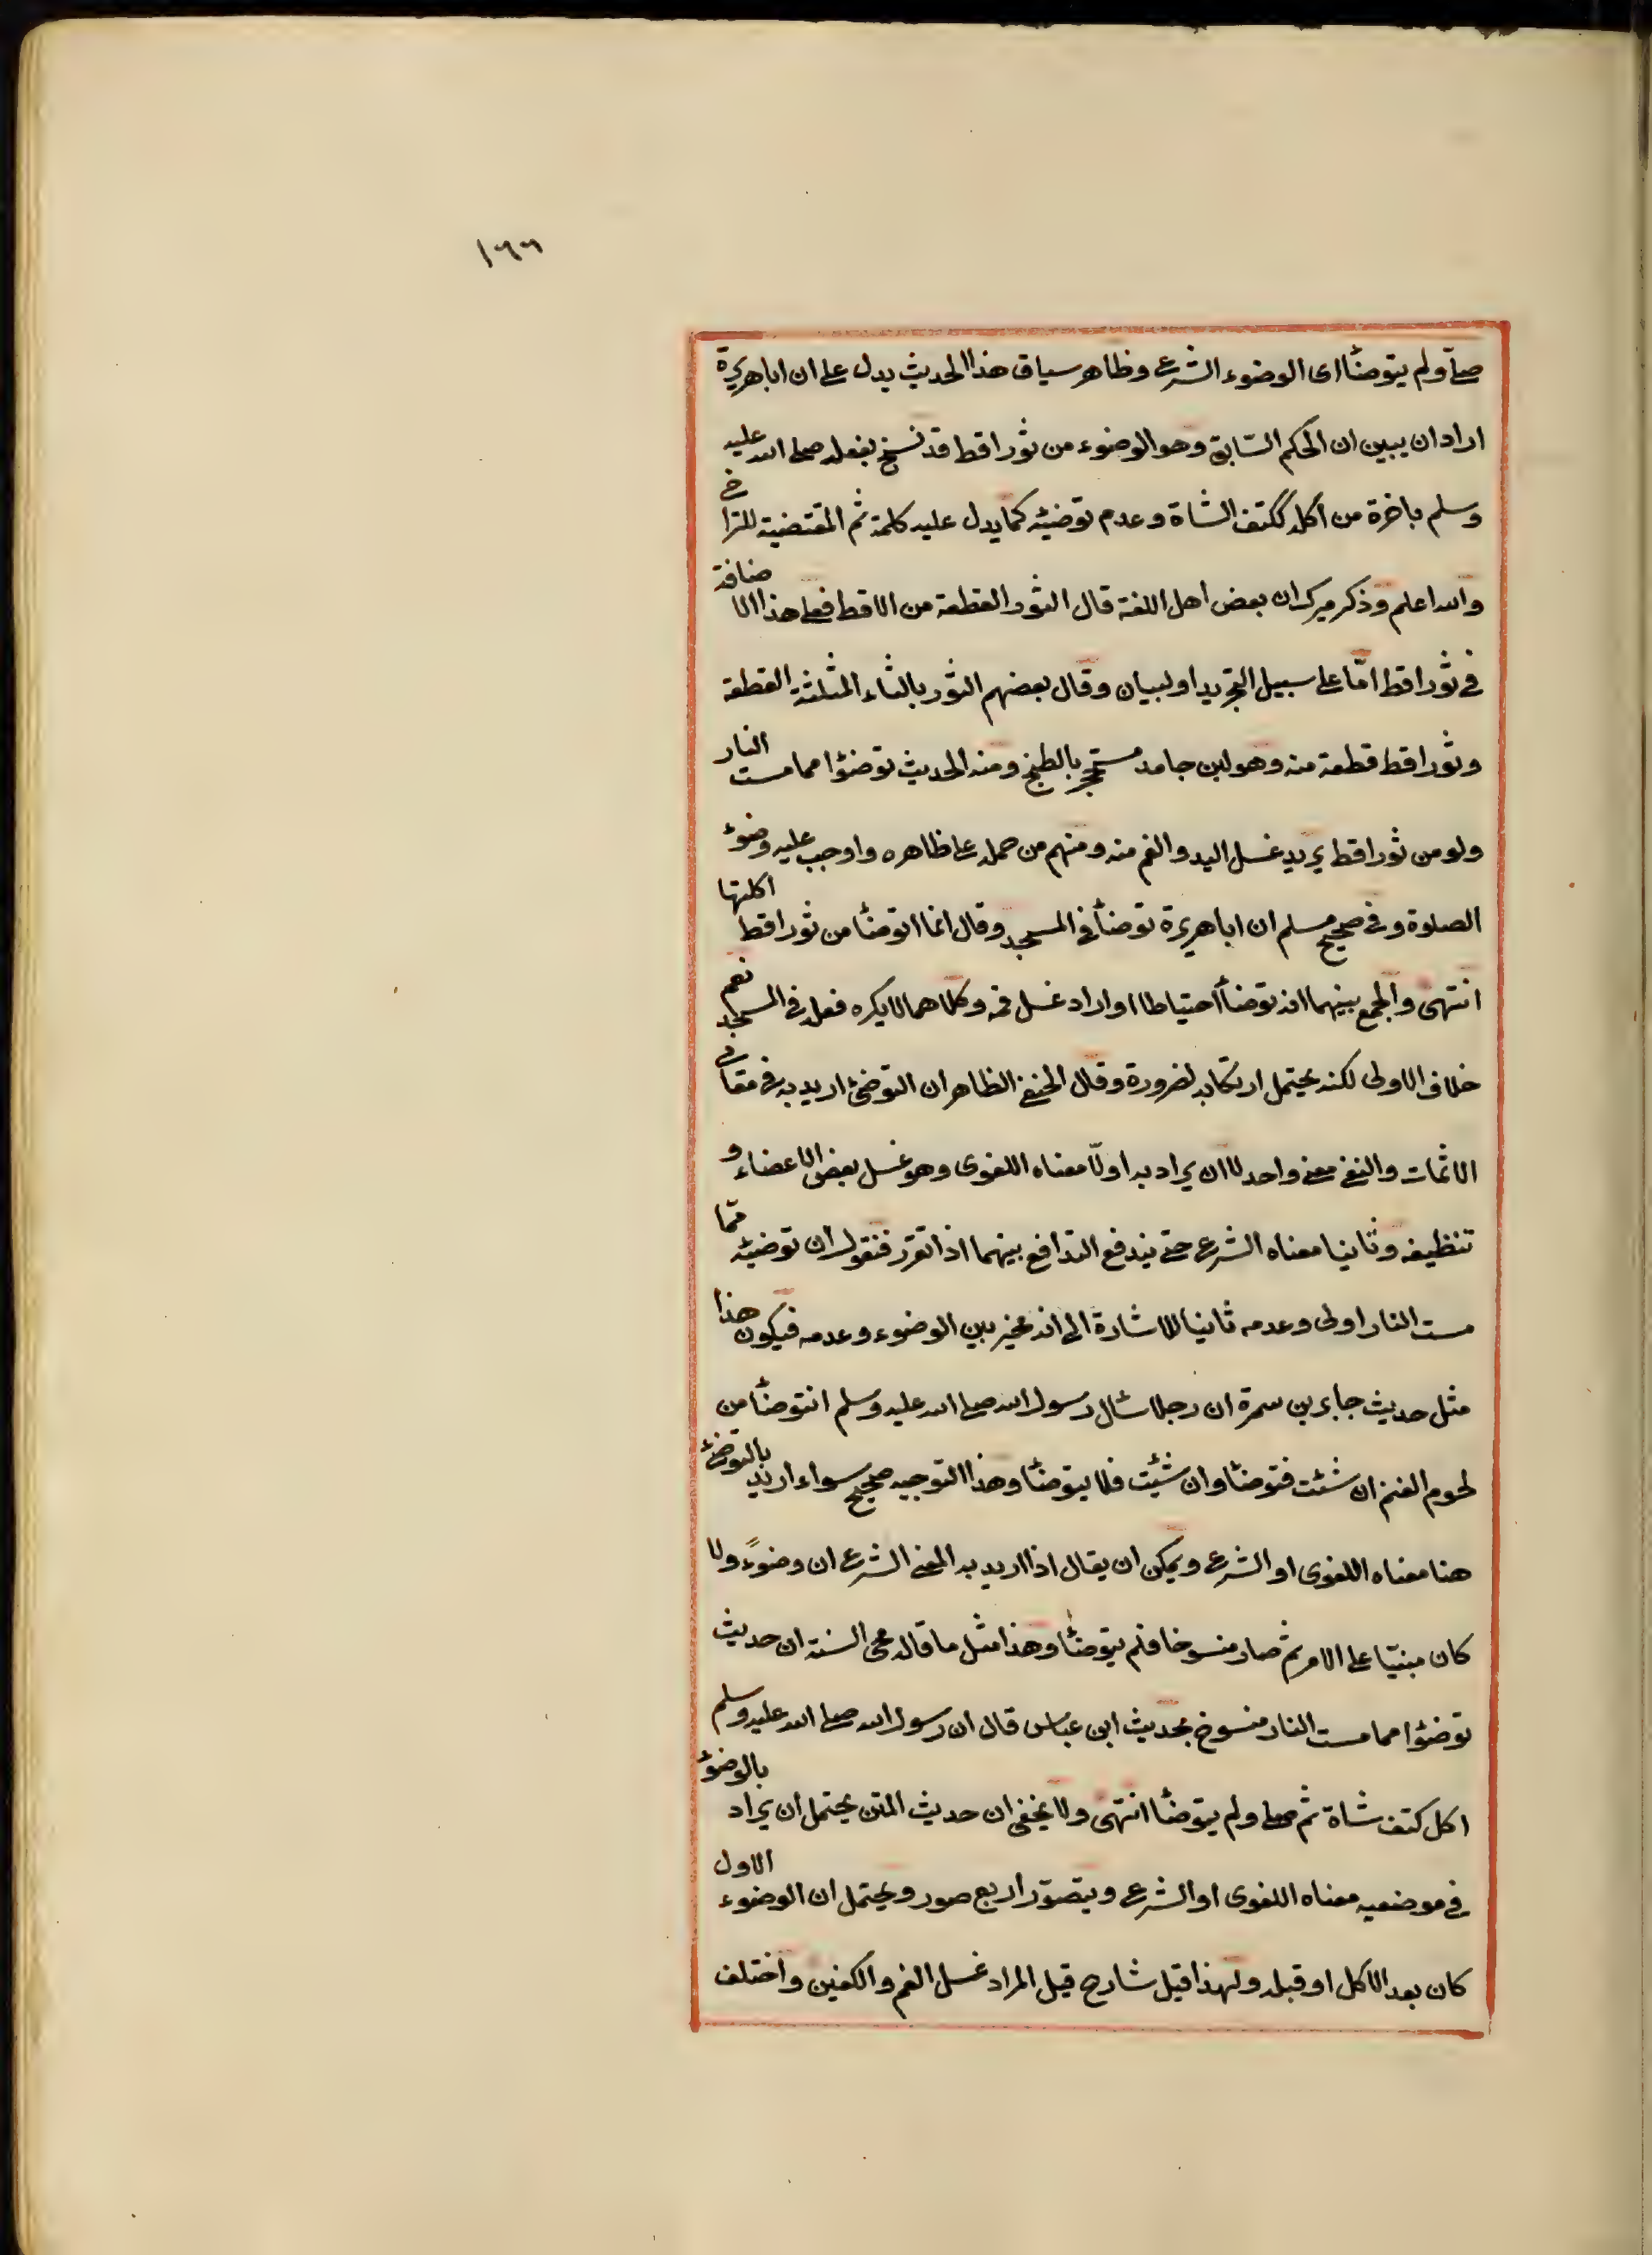 ١٦٦
صلى ولم يتوضأ اى الوضوء الشرعى وظاهر سياق هذا الحديث يدل على ان اباهريرة
اراد ان يبين ان الحكم السّابق وهو الوضوء من ثور اقط قد نسخ بفعله صلى الله عليه
وسلم باخرة من اكله كتف الشاة وعدم توضيه كما يدل عليه كلمة ثم المقتضية للتراخى
والله اعلم وذكر ميرك ان بعض اهل اللغة قال الثور القطعة من الاقط فعلى هذا الاضافة
فى ثور اقط امّا على سبيل التجريد او لبيان وقال بعضهم الثور بالثاء المثلثة القطعة
وثور اقط قطعة منه وهو لبن جامد مستحجر بالطبخ ومنه الحديث توضئوا مما مست النار
ولو من ثور اقط يريد غسل اليد والفم منه ومنهم من حمله على ظاهره واوجب عليه وضوء
الصلوة وفى صحيح مسلم ان اباهريرة توضأ فى المسجد وقال انما اتوضأ من ثور اقط اكلتها
انتهى والجمع بينهما انه توضأ احتياطا او اراد غسل فمه وكلاهما لا يكره فعله فى المسجد نعم
خلاف الاولى لكنه يحتمل ارتكابه لضرورة وقال الحنفى الظاهر ان التوضئ اريد به فى مقامى
الاثبات والنفى معنى واحد لا ان يراد به اولا معناه اللغوى وهو غسل بعض الاعضاء و
تنظيفه وثانيا معناه الشرعى حتى يندفع التدافع بينهما اذا تقرر فنقول ان توضيه ممّا
مست النار اولى وعدمه ثانيا للاشارة الى انه مخير بين الوضوء وعدمه فيكون هذا
مثل حديث جابر بن سمرة ان رجلا سئال رسول الله صلى الله عليه وسلم انتوضأ من
لحوم الغنم ان شئت فتوضأ وان شئيت فلا يتوضأ وهذا التوجيه صحيح سواء اريد بالتوضئ
هنا معناه اللغوى او الشرعى ويمكن ان يقال اذا اريد به المعنى الشرعى ان وضوءً ولا
كان مبنيّا على الامر ثم صار منسوخا فلم يتوضأ وهذا مثل ما قاله محى السنة ان حديث
توضئوا مما مست النار منسوخ بحديث ابن عباس قال ان رسول الله صلى الله عليه وسلم
اكل كتف شاة ثم صلى ولم يتوضأ انتهى ولا يخفى ان حديث المتن يحتمل ان يراد بالوضوء
فى موضعيه معناه اللغوى او الشرعى ويتصوّر اربع صور ويحتمل ان الوضوء الاول
كان بعد الاكل او قبله ولهذا قيل شارح قيل المراد غسل الفم والكفين واختلف